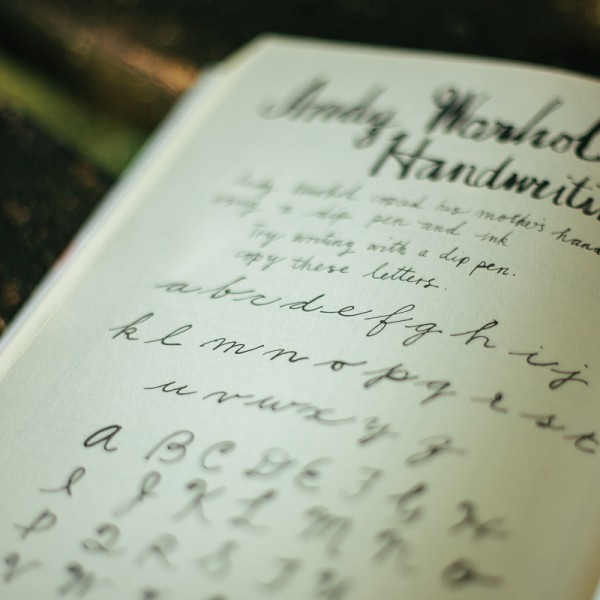 Andy Warhol
Handwriti
Andy Warhol used his mother's hand
using a dip pen and ink
Try writing with a dip pen.
copy these letters.
a b c d e f g h i j
k l m n o p q r s t
u v w x y z
a B C D E F G H
I J K L M N O
P Q R S T U
V W